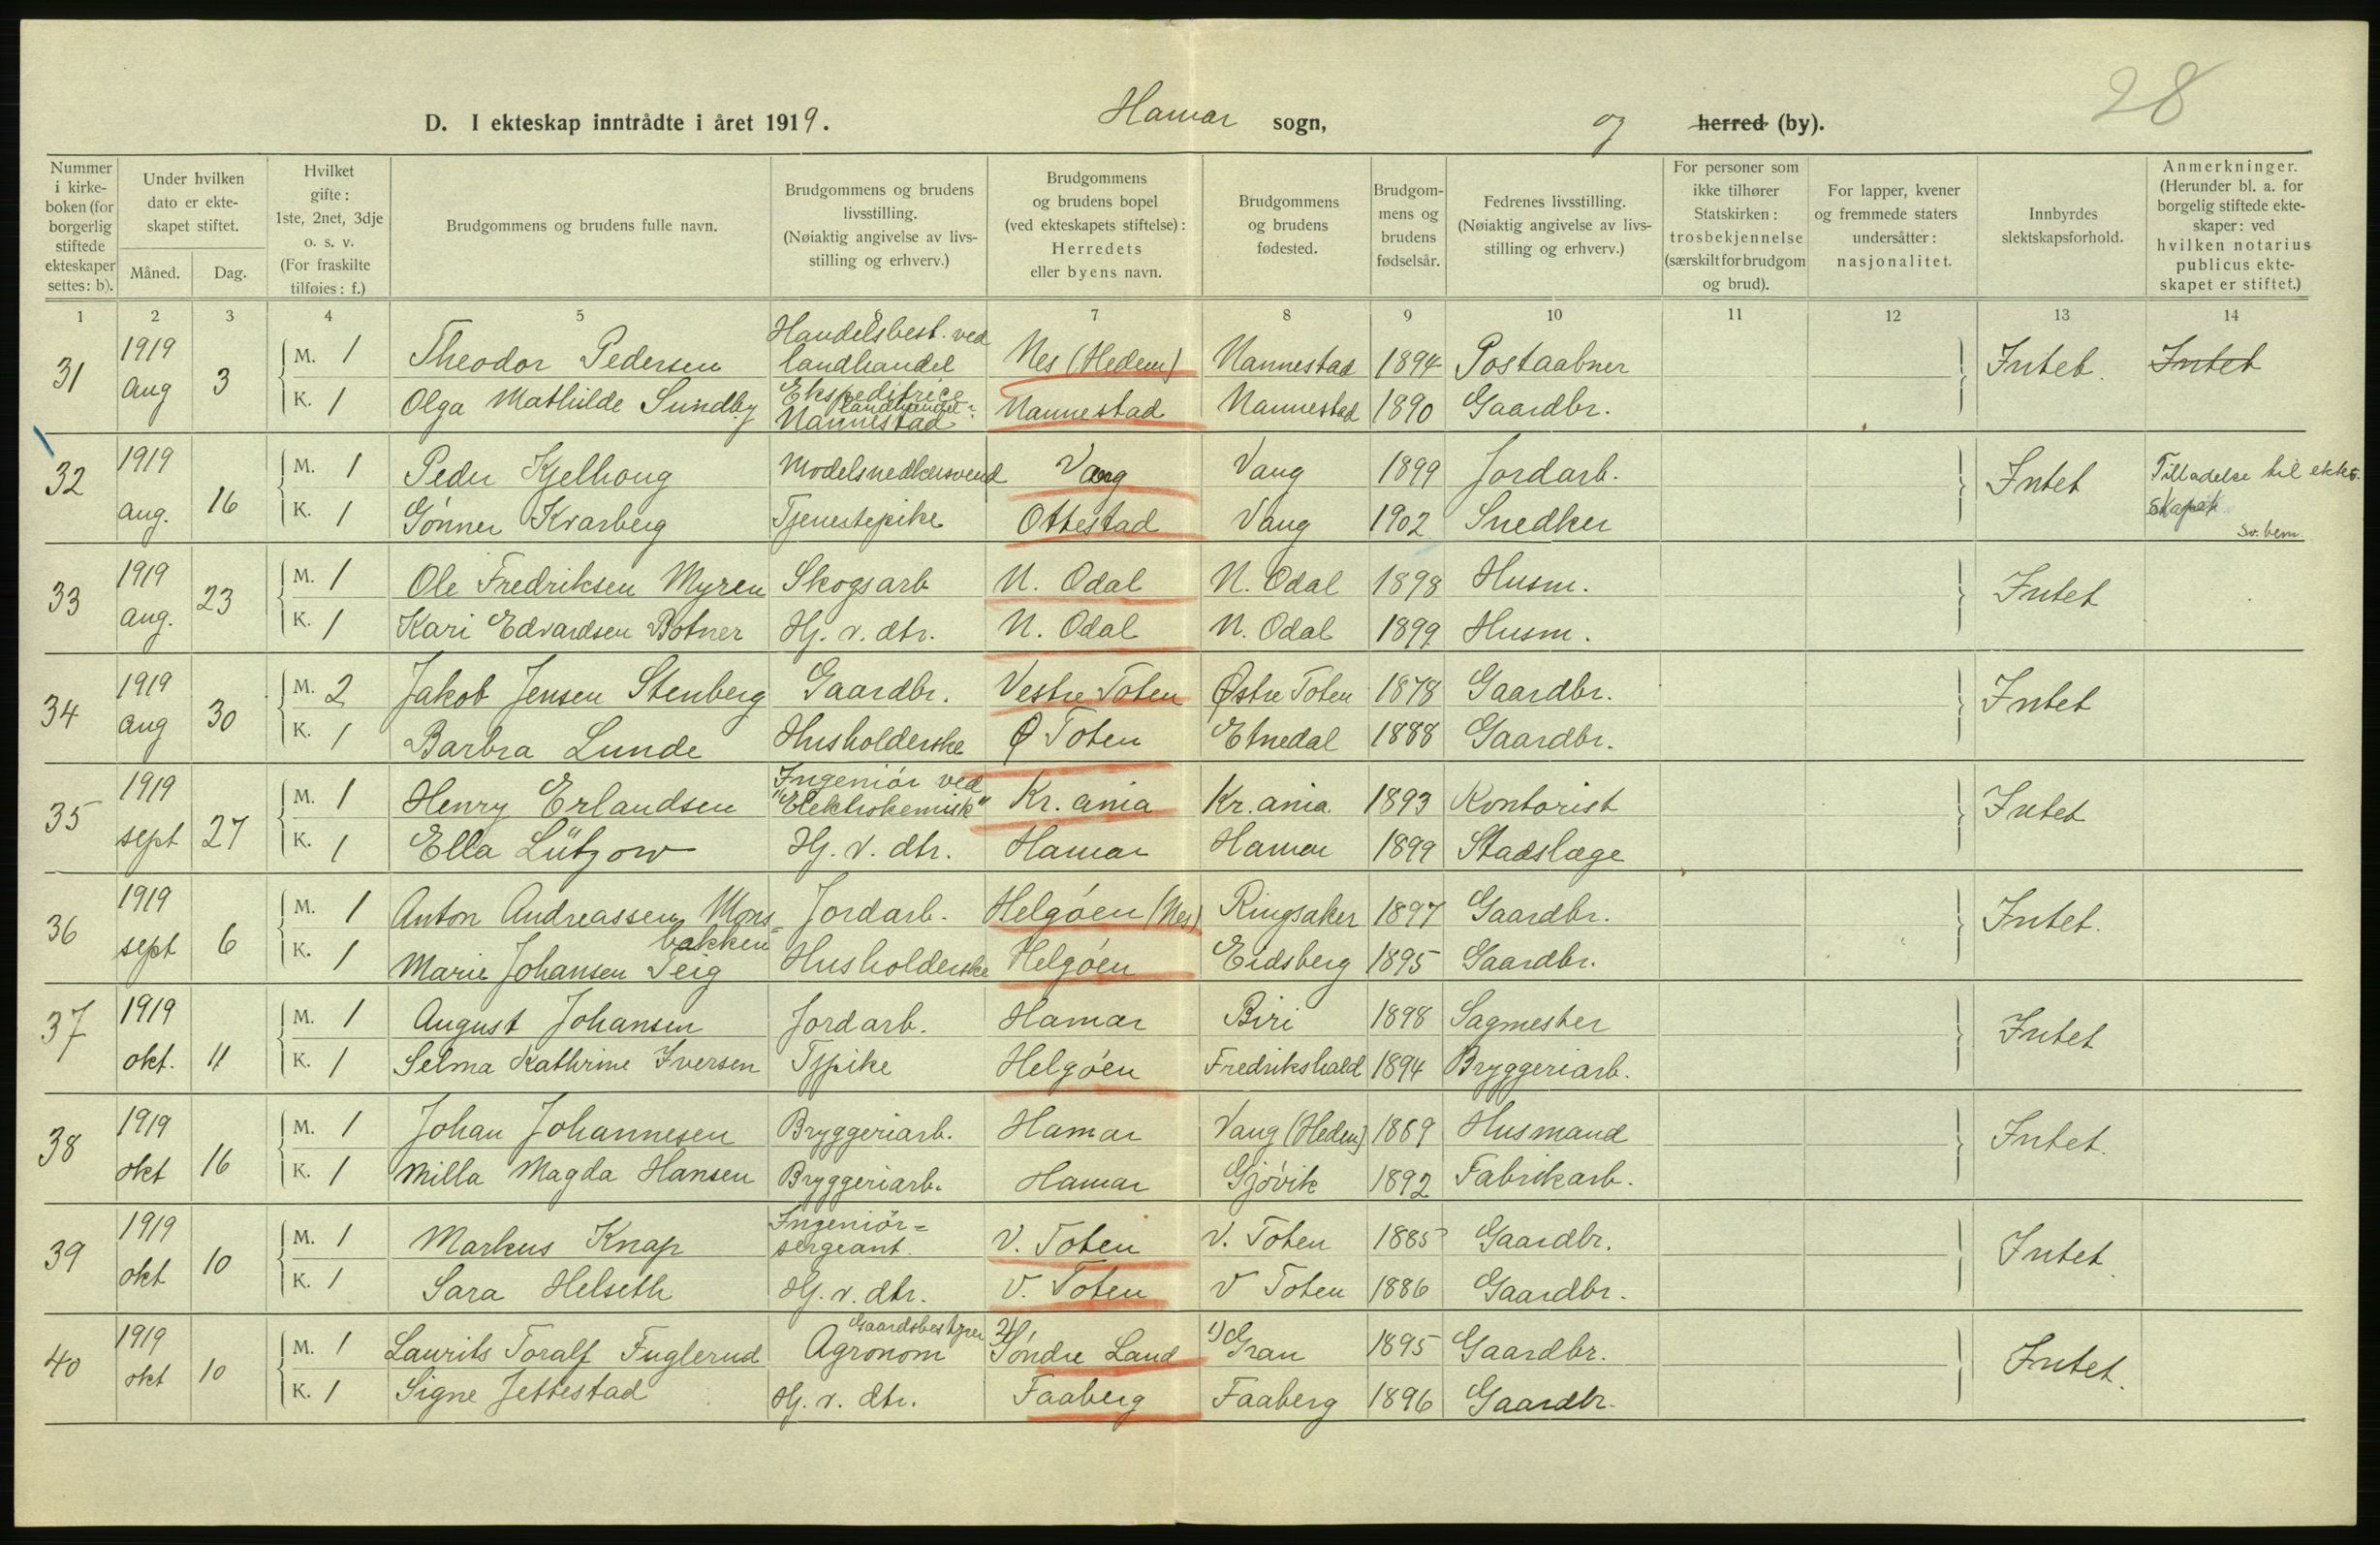 28
D. I ekteskap inntrådte i året 1919. Hamar sogn, og herred (by).
Nummer i kirkeboken (for borgerlig stiftede ekteskaper settes: b).
Under hvilken dato er ekteskapet stiftet.
Måned. Dag.
Hvilket gifte: 1ste, 2net, 3dje o. s. v. (For fraskilte tilføies: f.)
Brudgommens og brudens fulle navn.
Brudgommens og brudens livsstilling. (Nøiaktig angivelse av livsstilling og erhverv.)
Brudgommens og brudens bopel (ved ekteskapets stiftelse): Herredets eller byens navn.
Brudgommens og brudens fødested.
Brudgommens og brudens fødselsår.
Fedrenes livsstilling. (Nøiaktig angivelse av livsstilling og erhverv.)
For personer som ikke tilhører Statskirken: trosbekjennelse (særskilt for brudgom og brud).
For lapper, kvener og fremmede staters undersåtter: nasjonalitet.
Innbyrdes slektskapsforhold.
Anmerkninger. (Herunder bl. a. for borgelig stiftede ekteskaper: ved hvilken notarius publicus ekteskapet er stiftet.)
1 2 3 4 5 6 7 8 9 10 11 12 13 14
31 1919 Aug 3 M. 1 Theodor Pedersen Handelsbest. ved landhandel Nes (Hedem) Nannestad 1894 Postaabner Intet. Intet
K. 1 Olga Mathilde Sundby Ekspeditrice landhandel Nannestad Nannestad Nannestad 1890 Gaardbr.
32 1919 aug. 16 M. 1 Peder Kjelhoug Modelsnedkersvend Vang Vang 1899 Jordarb. Intet Tilladelse til ekteskapet sv. bem.
K. 1 Gónner Kvarberg Tjenestepike Ottestad Vang 1902 Snedker
33 1919 aug. 23 M. 1 Ole Fredriksen Myren Skogsarb N. Odal N. Odal 1898 Husm. Intet
K. 1 Kari Edvardsen Botner Hj. v. dtr. N. Odal N. Odal 1899 Husm.
34 1919 aug 30 M. 2 Jakob Jensen Stenberg Gaardbr. Vestre Toten Østre Toten 1878 Gaardbr. Intet
K. 1 Barbra Lunde Husholderske Ø Toten Etnedal 1888 Gaardbr.
35 1919 sept 27 M. 1 Henry Erlandsen Ingeniór ved "Elektrokemisk" Kr.ania Kr.ania 1893 Kontorist Intet
K. 1 Ella Lützow Hj. v. dtr. Hamar Hamar 1899 Stadslæge
36 1919 sept 6 M. 1 Anton Andreassen Monsbakken Jordarb. Helgóen (Nes) Ringsaker 1897 Gaardbr. Intet.
K. 1 Marie Johansen Teig Husholderske Helgóen Eidsberg 1895 Gaardbr.
37 1919 okt. 11 M. 1 August Johansen Jordarb. Hamar Biri 1898 Sagmester Intet
K. 1 Selma Kathrine Iversen Tjpike Helgóen Fredrikshald 1894 Bryggeriarb.
38 1919 okt 16 M. 1 Johan Johannesen Bryggeriarb. Hamar Vang (Hedem) 1869 Husmand Intet.
K. 1 Milla Magda Hansen Bryggeriarb. Hamar Gjóvik 1892 Fabrikarb.
39 1919 okt 10 M. 1 Markus Knap Ingeniór=sergeant. V. Toten V. Toten 1885 Gaardbr. Intet.
K. 1 Sara Helseth Hj. v. dtr. V. Toten V Toten 1886 Gaardbr.
40 1919 okt 10 M. 1 Laurits Toralf Fuglerud Gaardsbestyrer Agronom 2) Sóndre Land 1) Gran 1895 Gaardbr. Intet.
K. 1 Signe Jettestad Hj. v. dtr. Faaberg Faaberg 1896 Gaardbr.